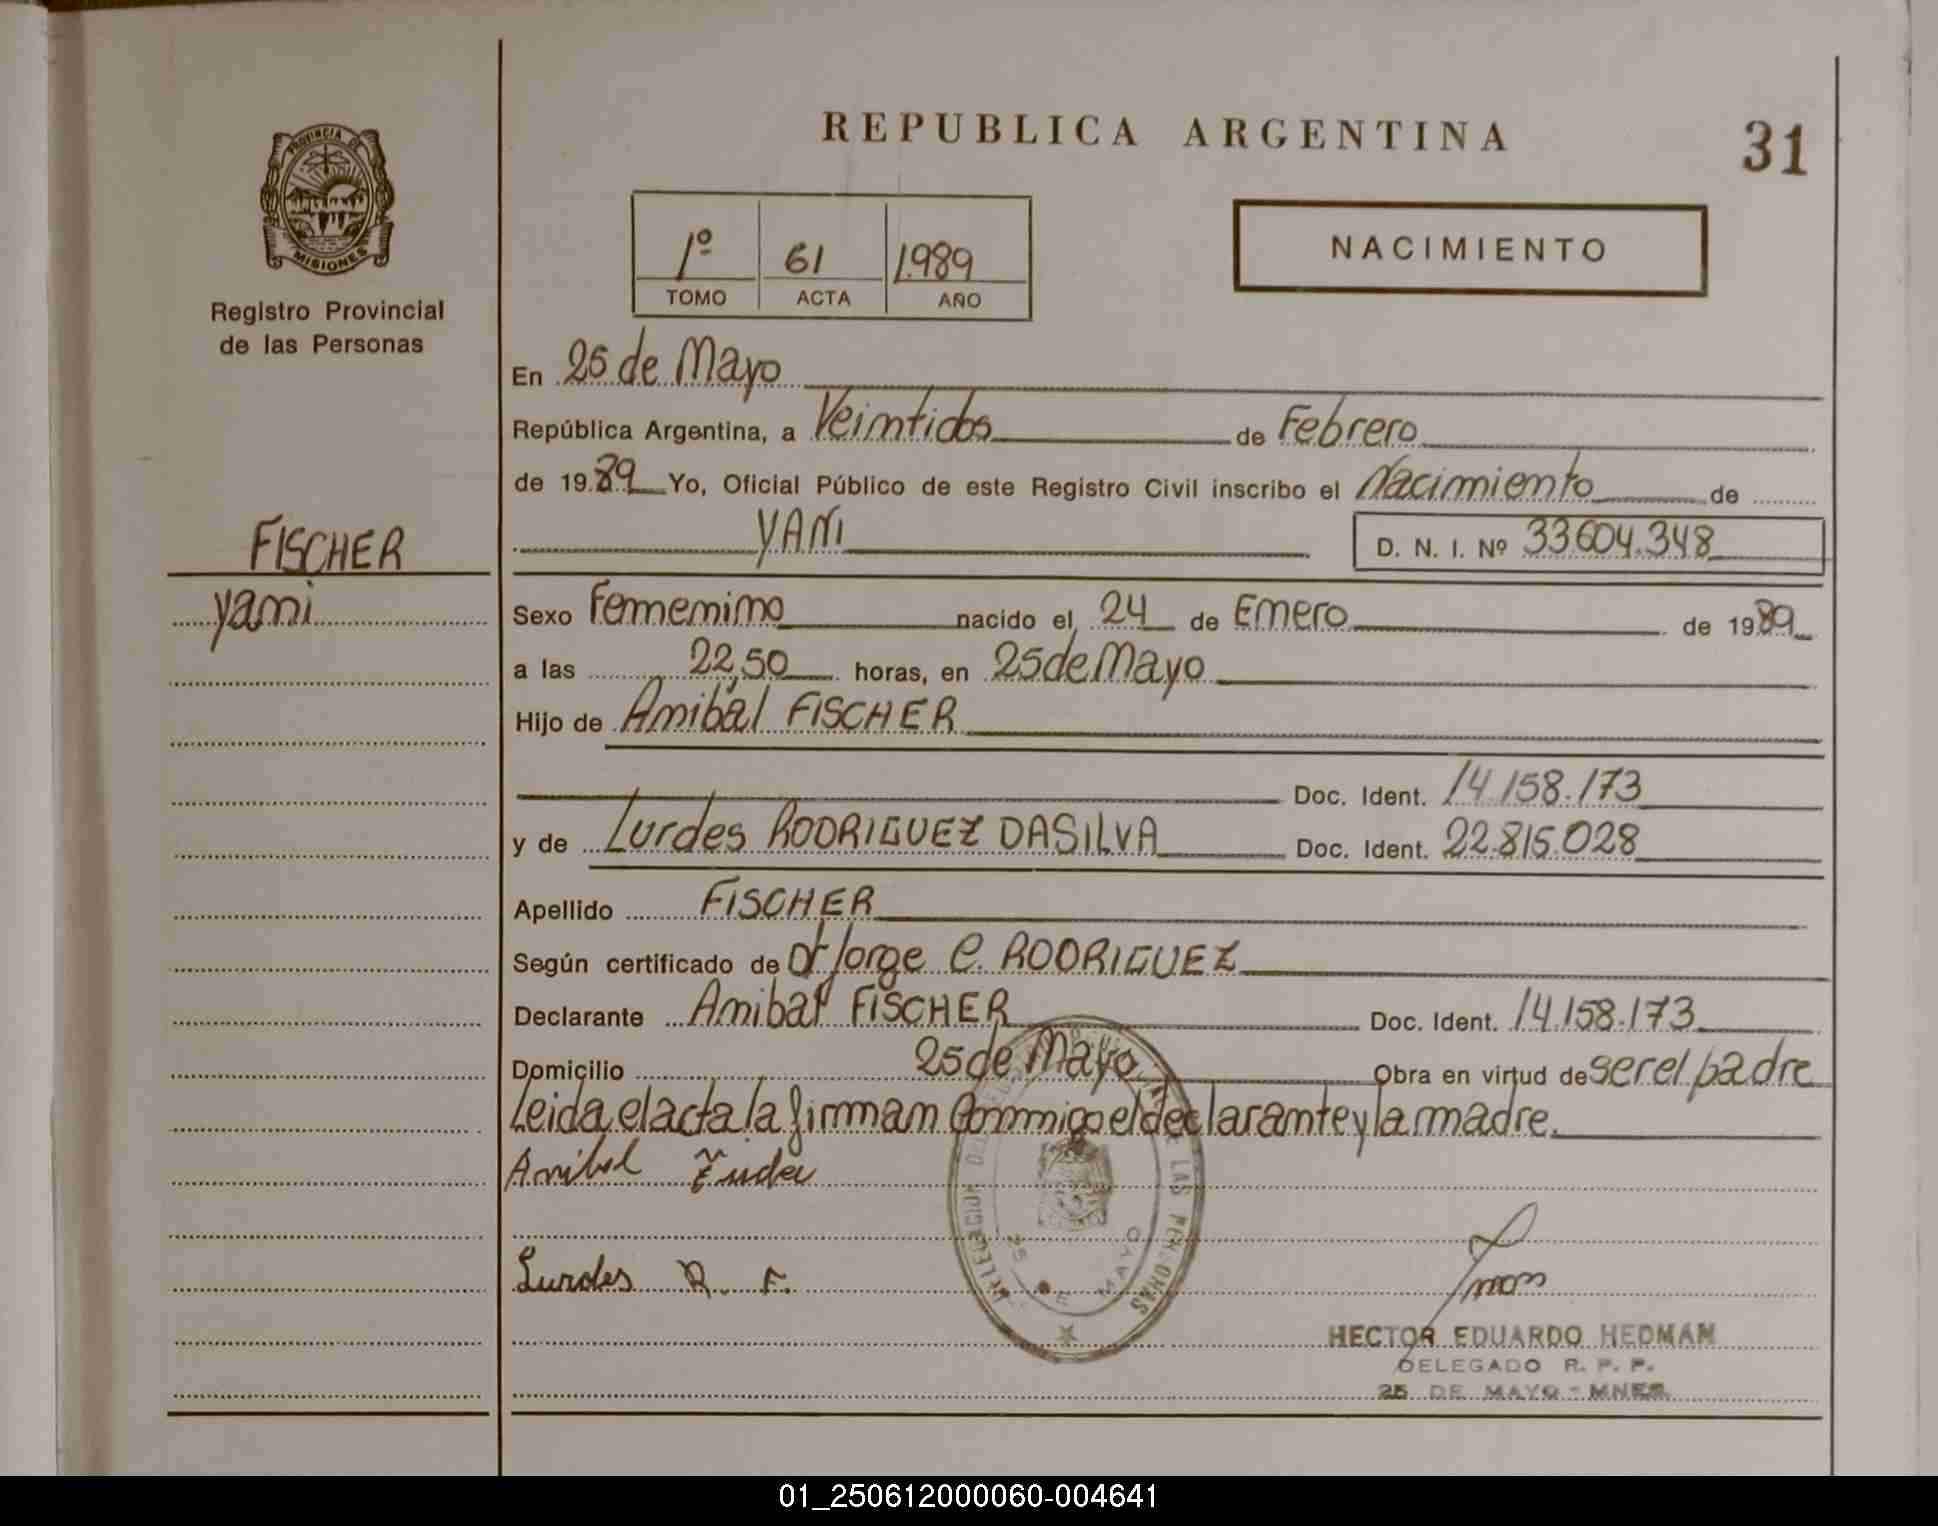 REPUBLICA ARGENTINA
31
PROVINCIA DE
MISIONES
Registro Provincial
de las Personas
1º 61 1.989
TOMO ACTA AÑO
NACIMIENTO
En 25 de Mayo
República Argentina, a Veintidos de Febrero
de 1989 Yo, Oficial Público de este Registro Civil inscribo el Nacimiento de
FISCHER
YANI D. N. I. Nº 33.604.348
Yani
Sexo Femenino nacido el 24 de Enero de 1989
a las 22,50 horas, en 25 de Mayo
Hijo de Anibal FISCHER
Doc. Ident. 14.158.173
y de Lurdes RODRIGUEZ DASILVA Doc. Ident. 22.815.028
Apellido FISCHER
Según certificado de dr Jorge C. RODRIGUEZ
Declarante Anibal FISCHER Doc. Ident. 14.158.173
Domicilio 25 de Mayo Obra en virtud de ser el padre
Leida el acta la firman conmigo el declarante y la madre.
Anibal
Lurdes R. F.
25 DE MAYO
HECTOR EDUARDO HEDMAN
DELEGADO R. P. P.
25 DE MAYO - MNES.
01_250612000060-004641